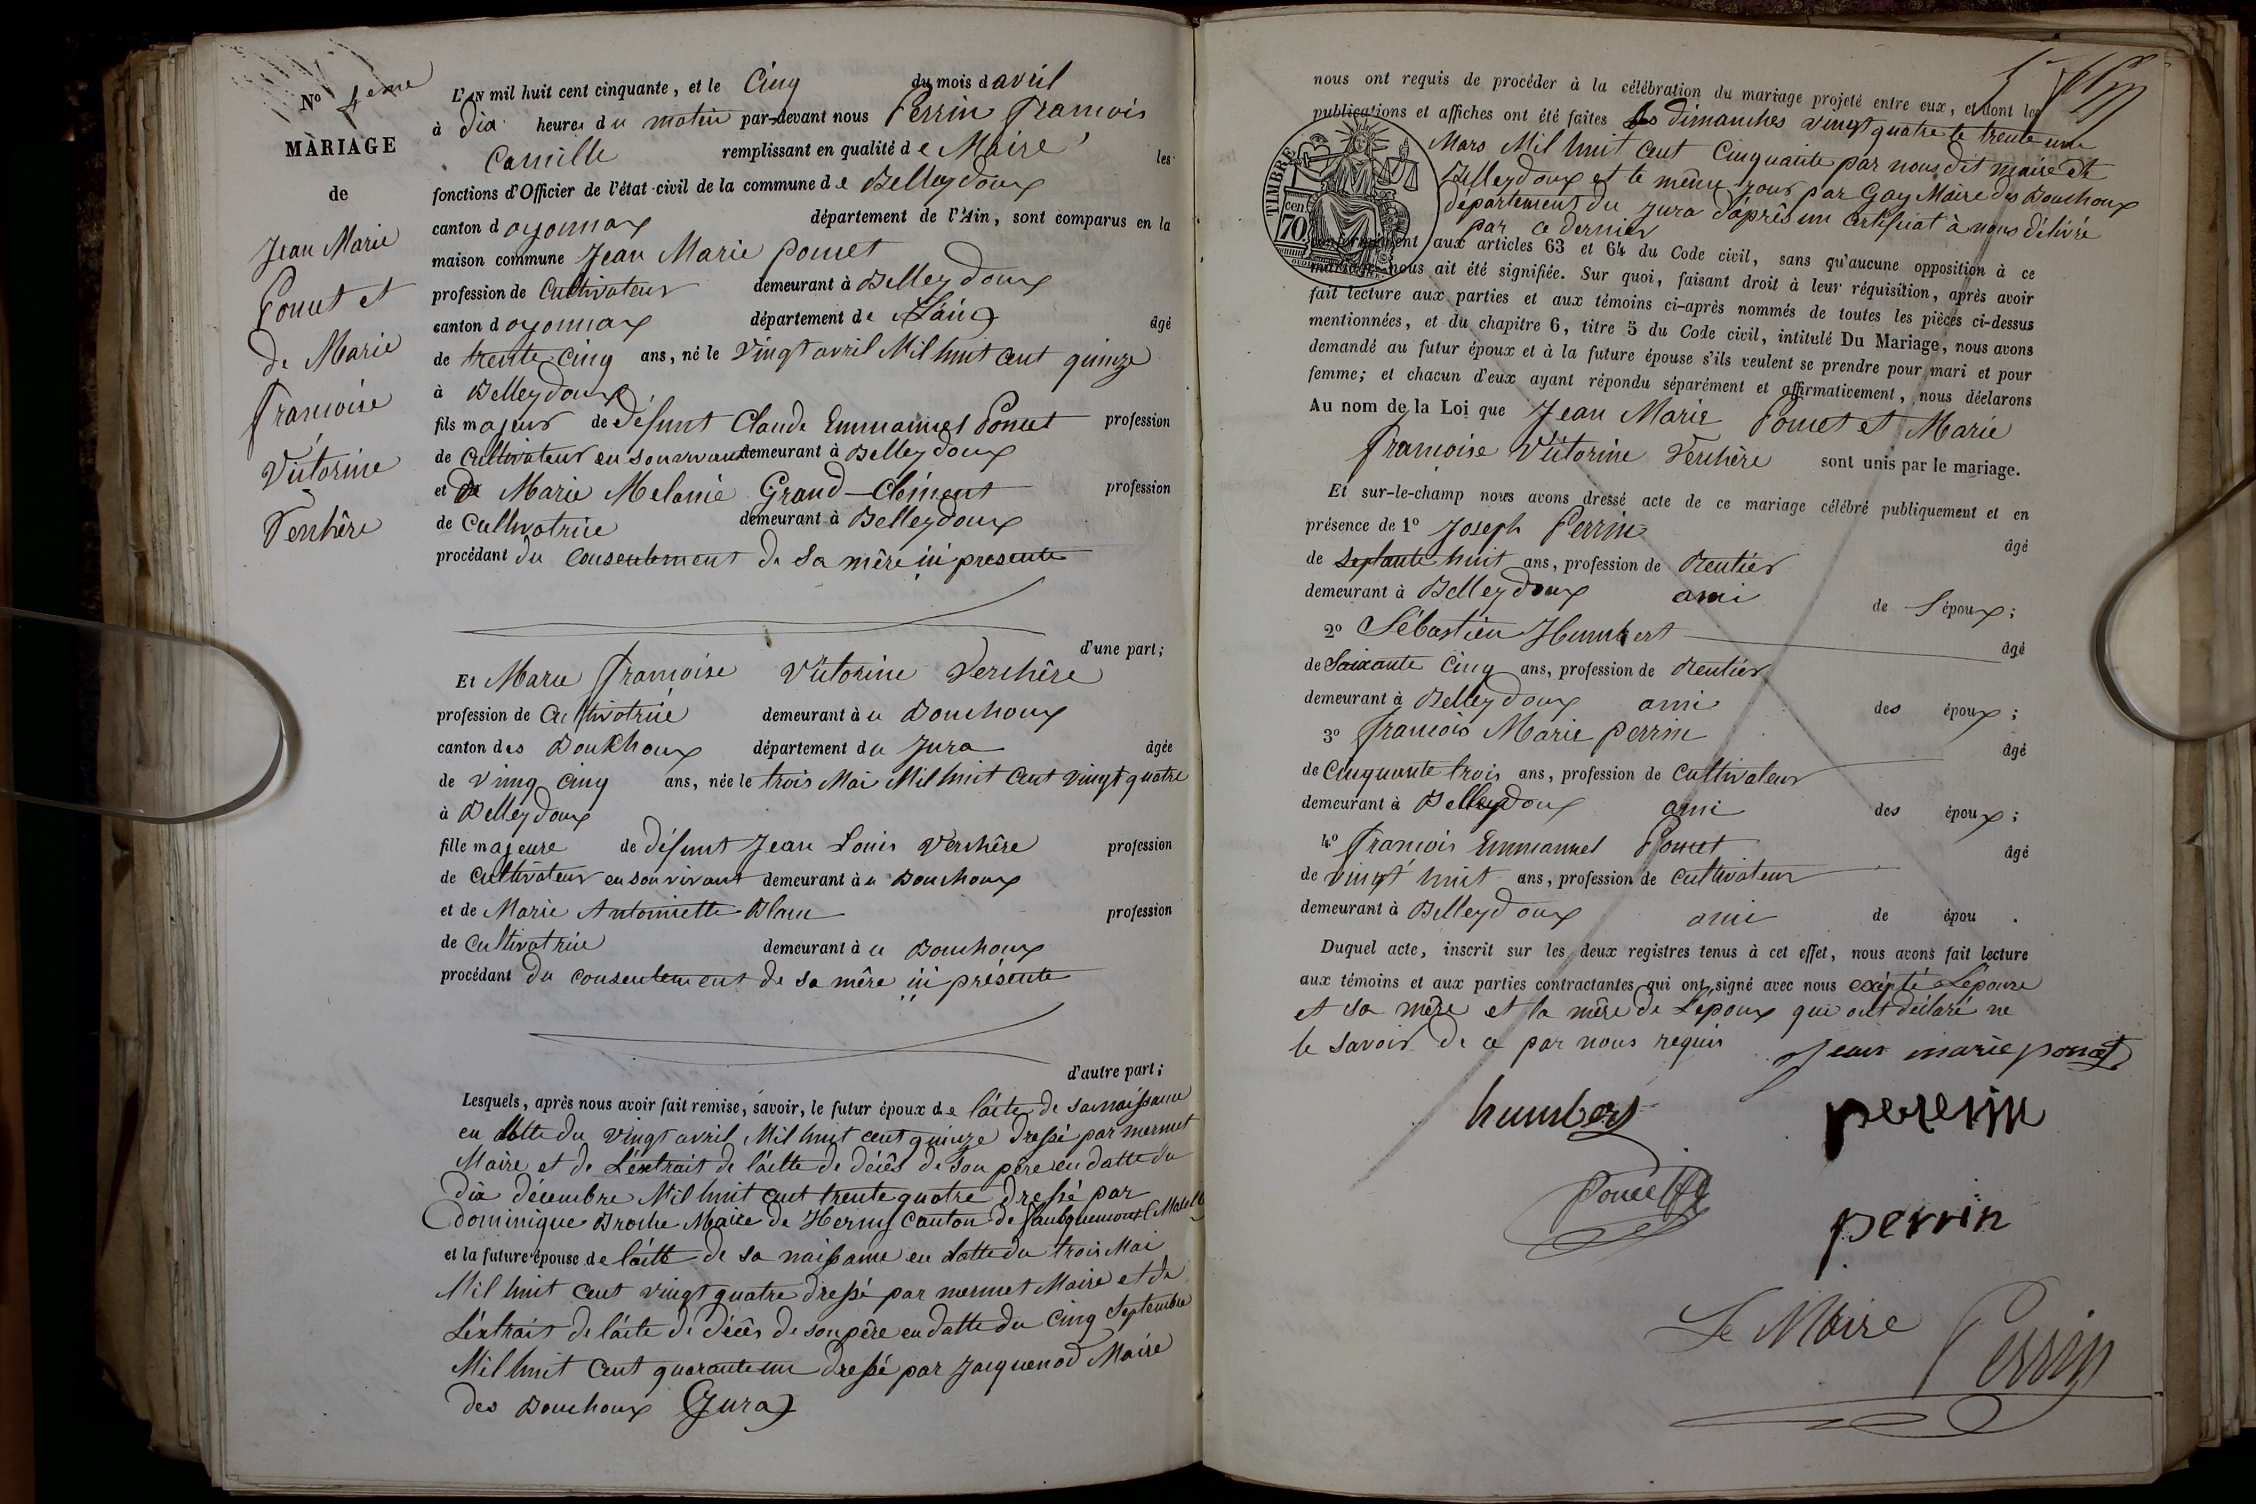 N° 4eme
MARIAGE
de
Jean Marie
Poncet et
de Marie
Francoise
Victorine
Verchère
L'AN mil huit cent cinquante, et le Cinq du mois d avril
à dix heures du matin par-devant nous Perrin Francois
Camille remplissant en qualité de Maire les
fonctions d'Officier de l'état civil de la commune de Belleydoux
canton d oyonnax département de l'Ain, sont comparus en la
maison commune Jean Marie Poncet
profession de Cultivateur demeurant à Belleydoux
canton d oyonnax département de L'ain âgé
de trente cinq ans, né le vingt avril Mil huit cent quinze
à Belleydoux
fils majeur de défunt Claude Emmanuel Poncet profession
de Cultivateur en son vivant demeurant à Belleydoux
et de Marie Melanie Grand-Clément profession
de Cultivatrice demeurant à Belleydoux
procédant du consentement de sa mère ici presente
d'une part;
Et Marie Francoise Victorine Verchère
profession de Cultivatrice demeurant à u Bouchoux
canton des Boukhoux département du Jura âgée
de vinq cinq ans, née le trois Mai Mil huit cent vingt quatre
à Belleydoux
fille majeure de défunt Jean Louis Verchère profession
de Cultivateur en son vivant demeurant à u Bouchoux
et de Marie Antoinette Blanc profession
de Cultivatrice demeurant à u Bouchoux
procédant du consentement de sa mère ici présente
d'autre part;
Lesquels, après nous avoir fait remise, savoir, le futur époux de l'acte de sa naissance
en datte du vingt avril Mil huit cent quinze dressé par mermet
Maire et de L'extrait de l'acte de décès de son père en datte du
dix décembre Mil huit cent trente quatre dressé par
dominique Broche Maire de Herny Canton de faulquemont (Moselle
et la future épouse de l'acte de sa naissance en datte du trois Mai
Mil huit cent vingt quatre dressé par mermet Maire et de
L'extrait de l'acte de décès de son père en datte du cinq Septembre
Mil huit cent quarante un dressé par Jacquenod Maire
des Bouchoux (Jura)
nous ont requis de procéder à la célébration du mariage projeté entre eux, et dont les
publications et affiches ont été faites les dimanches vingt quatre et trente un
Mars Mil huit cent Cinquante par nous dit maire de
Belleydoux et le même jour par Gay Maire des Bouchoux
département du Jura d'après un certificat à nous délivré
par ce dernier
TIMBRE
cen.
70
conformément aux articles 63 et 64 du Code civil, sans qu'aucune opposition à ce
mariage nous ait été signifiée. Sur quoi, faisant droit à leur réquisition, après avoir
fait lecture aux parties et aux témoins ci-après nommés de toutes les pièces ci-dessus
mentionnées, et du chapitre 6, titre 5 du Code civil, intitulé Du Mariage, nous avons
demandé au futur époux et à la future épouse s'ils veulent se prendre pour mari et pour
femme; et chacun d'eux ayant répondu séparément et affirmativement, nous déclarons
Au nom de la Loi que Jean Marie Poncet et Marie
Francoise Victorine Verchère sont unis par le mariage.
Et sur-le-champ nous avons dressé acte de ce mariage célébré publiquement et en
présence de 1° Joseph Perrin âgé
de septante huit ans, profession de Rentier
demeurant à Belleydoux ami de L'époux;
2° Sébastien Humbert âgé
de Soixante Cinq ans, profession de Rentier
demeurant à Belleydoux ami des époux;
3° francois Marie perrin âgé
de Cinquante trois ans, profession de Cultivateur
demeurant à Belleydoux ami des époux;
4° francois Emmanuel Poncet âgé
de vingt huit ans, profession de Cultivateur
demeurant à Belleydoux ami de épou .
Duquel acte, inscrit sur les deux registres tenus à cet effet, nous avons fait lecture
aux témoins et aux parties contractantes qui ont signé avec nous excepté L'épouse
et sa mère et la mère de L'époux qui ont déclaré ne
le savoir de ce par nous requis
Jean marie poncet
humbert
perrin
Poncet
perrin
Le Maire Perrin